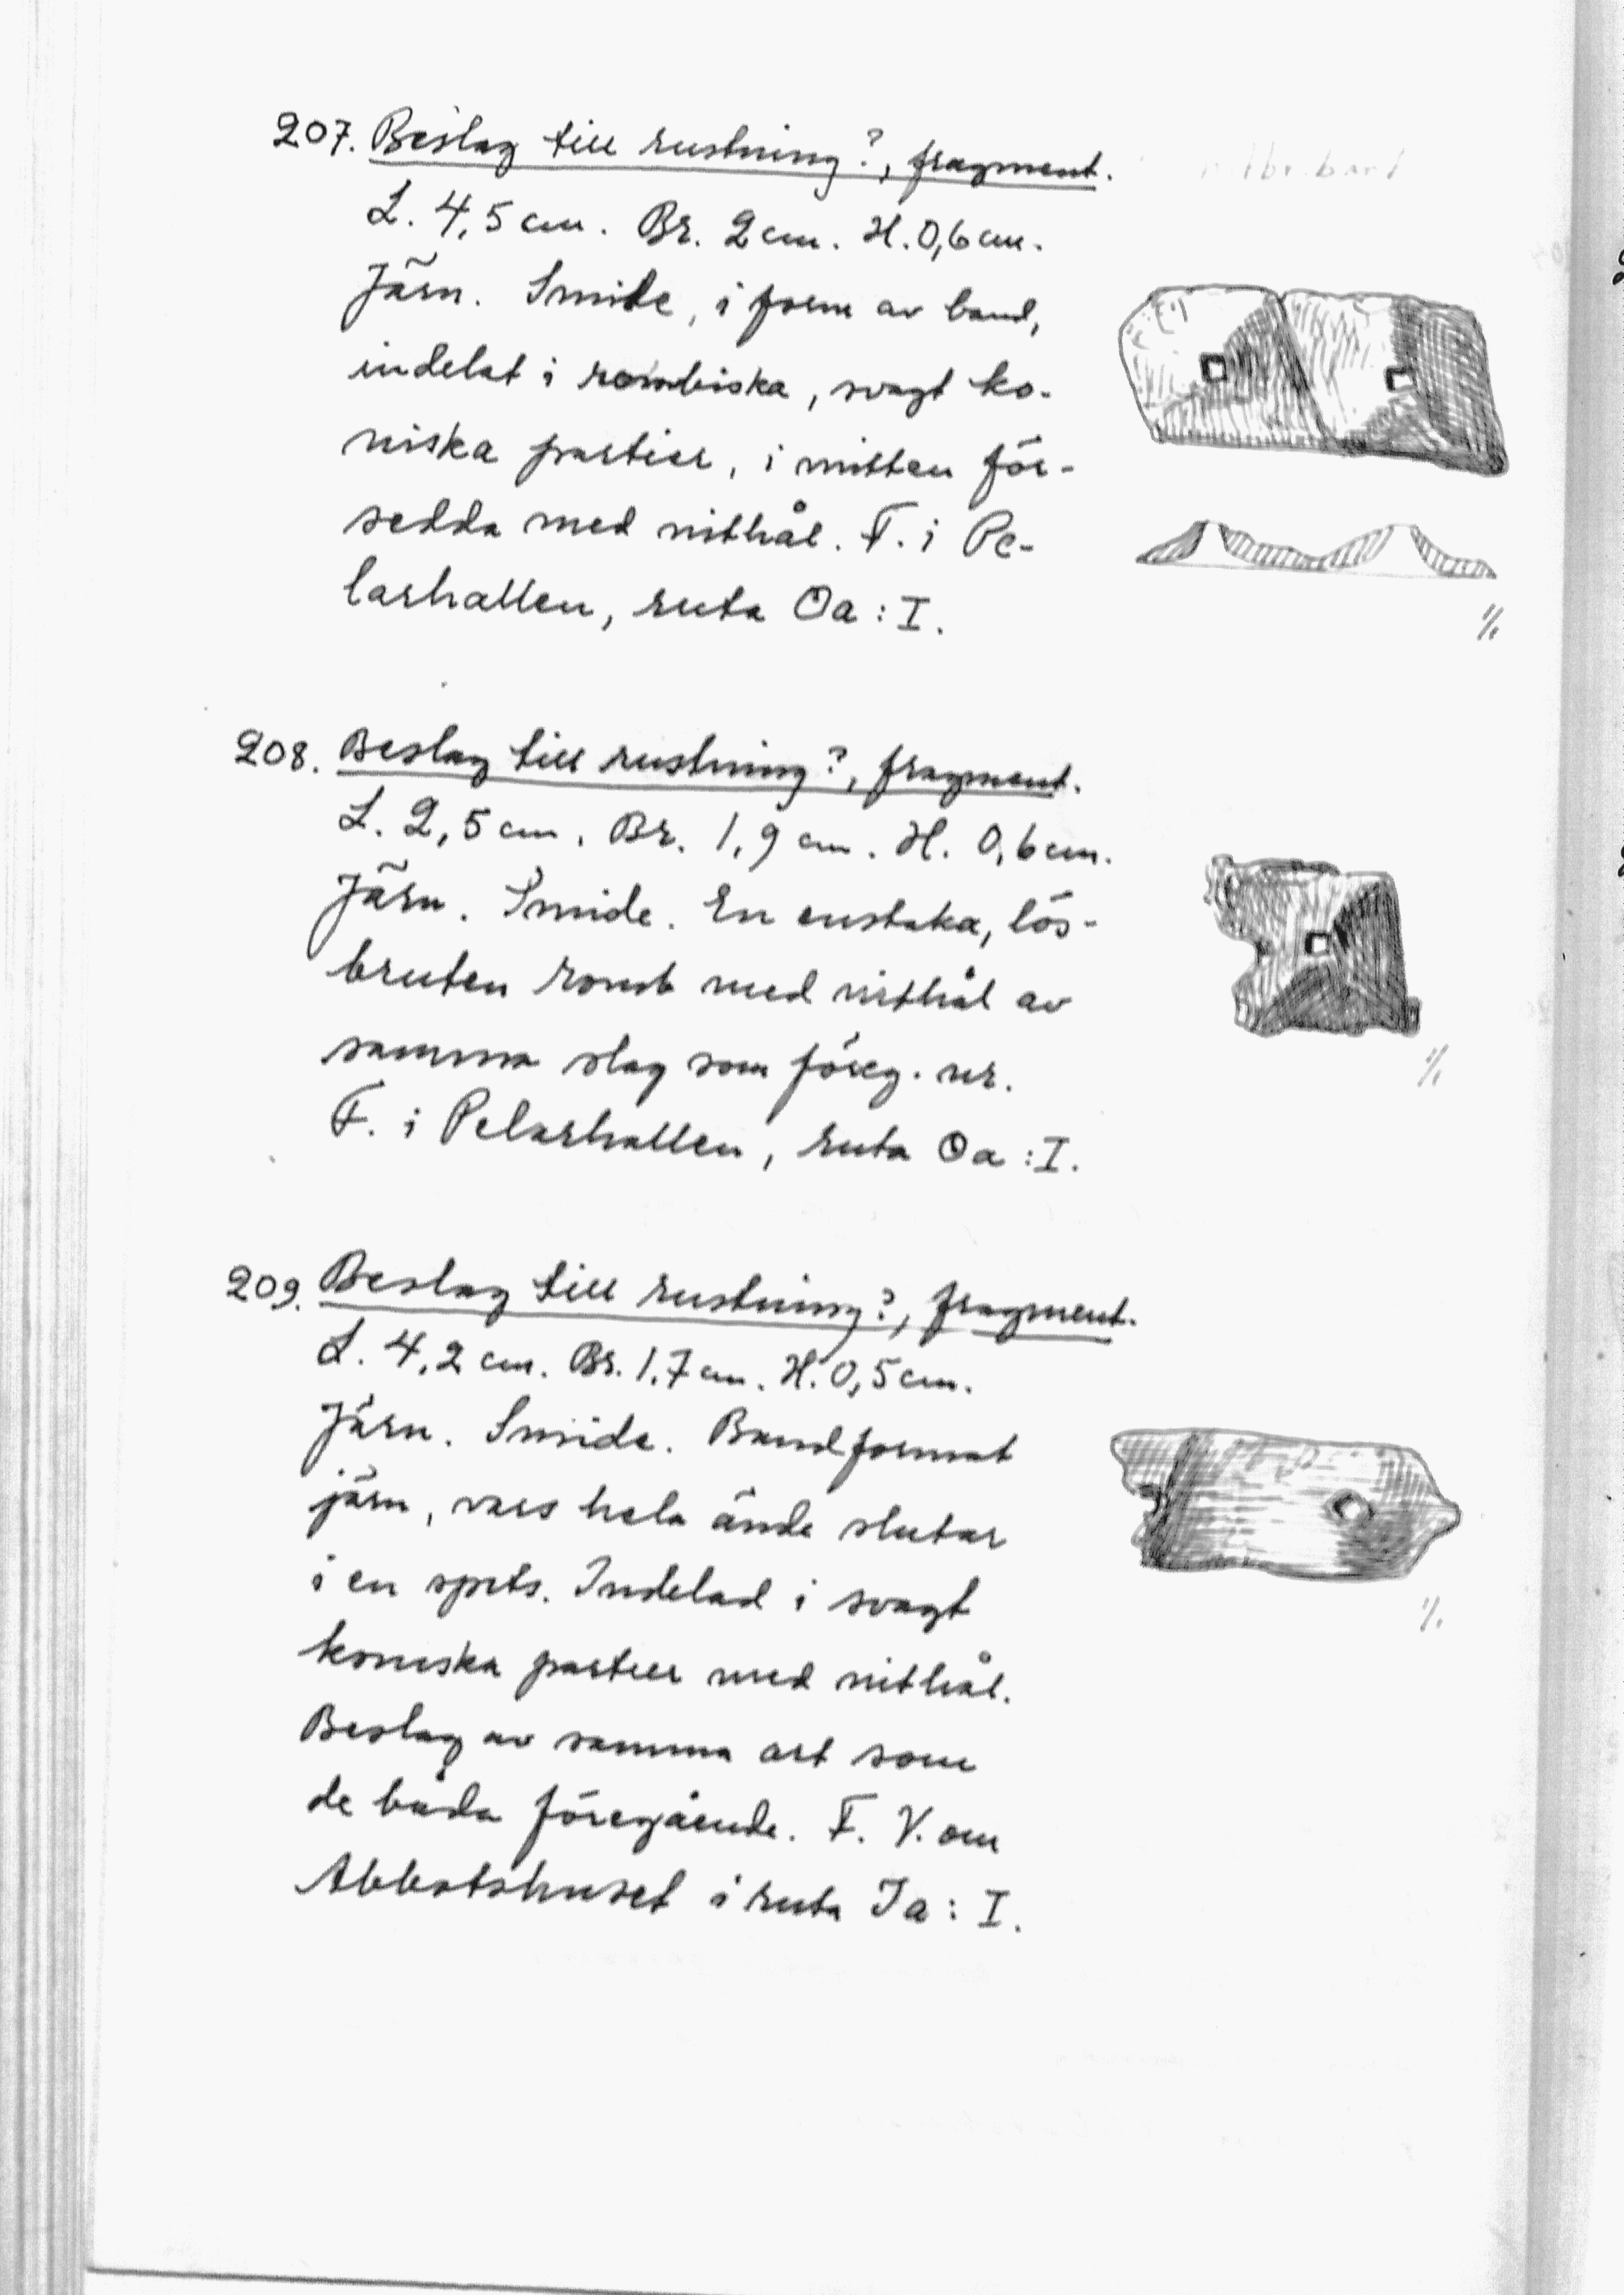 207. Beslag till rustning?, fragment.
L. 4,5 cm. Br. 2 cm. H. 0,6 cm.
Järn. Smide, i form av band,
indelat i rombiska, svagt ko-
niska partier, i mitten för-
sedda med nithål. F. i Pe-
larhallen, ruta Oa : I.
1/1
208. Beslag till rustning?, fragment.
L. 2,5 cm. Br. 1,9 cm. H. 0,6 cm.
Järn. Smide. En enstaka, lös-
bruten romb med nithål av
samma slag som föreg. nr.
F. i Pelarhallen, ruta Oa : I.
1/1
209. Beslag till rustning?, fragment.
L. 4,2 cm. Br. 1,7 cm. H. 0,5 cm.
Järn. Smide. Bandformat
järn, vars hela ände slutar
i en spets. Indelad i svagt
koniska partier med nithål.
Beslag av samma art som
de båda föregående. F. V. om
Abbotshuset i ruta Ja : I.
1/1